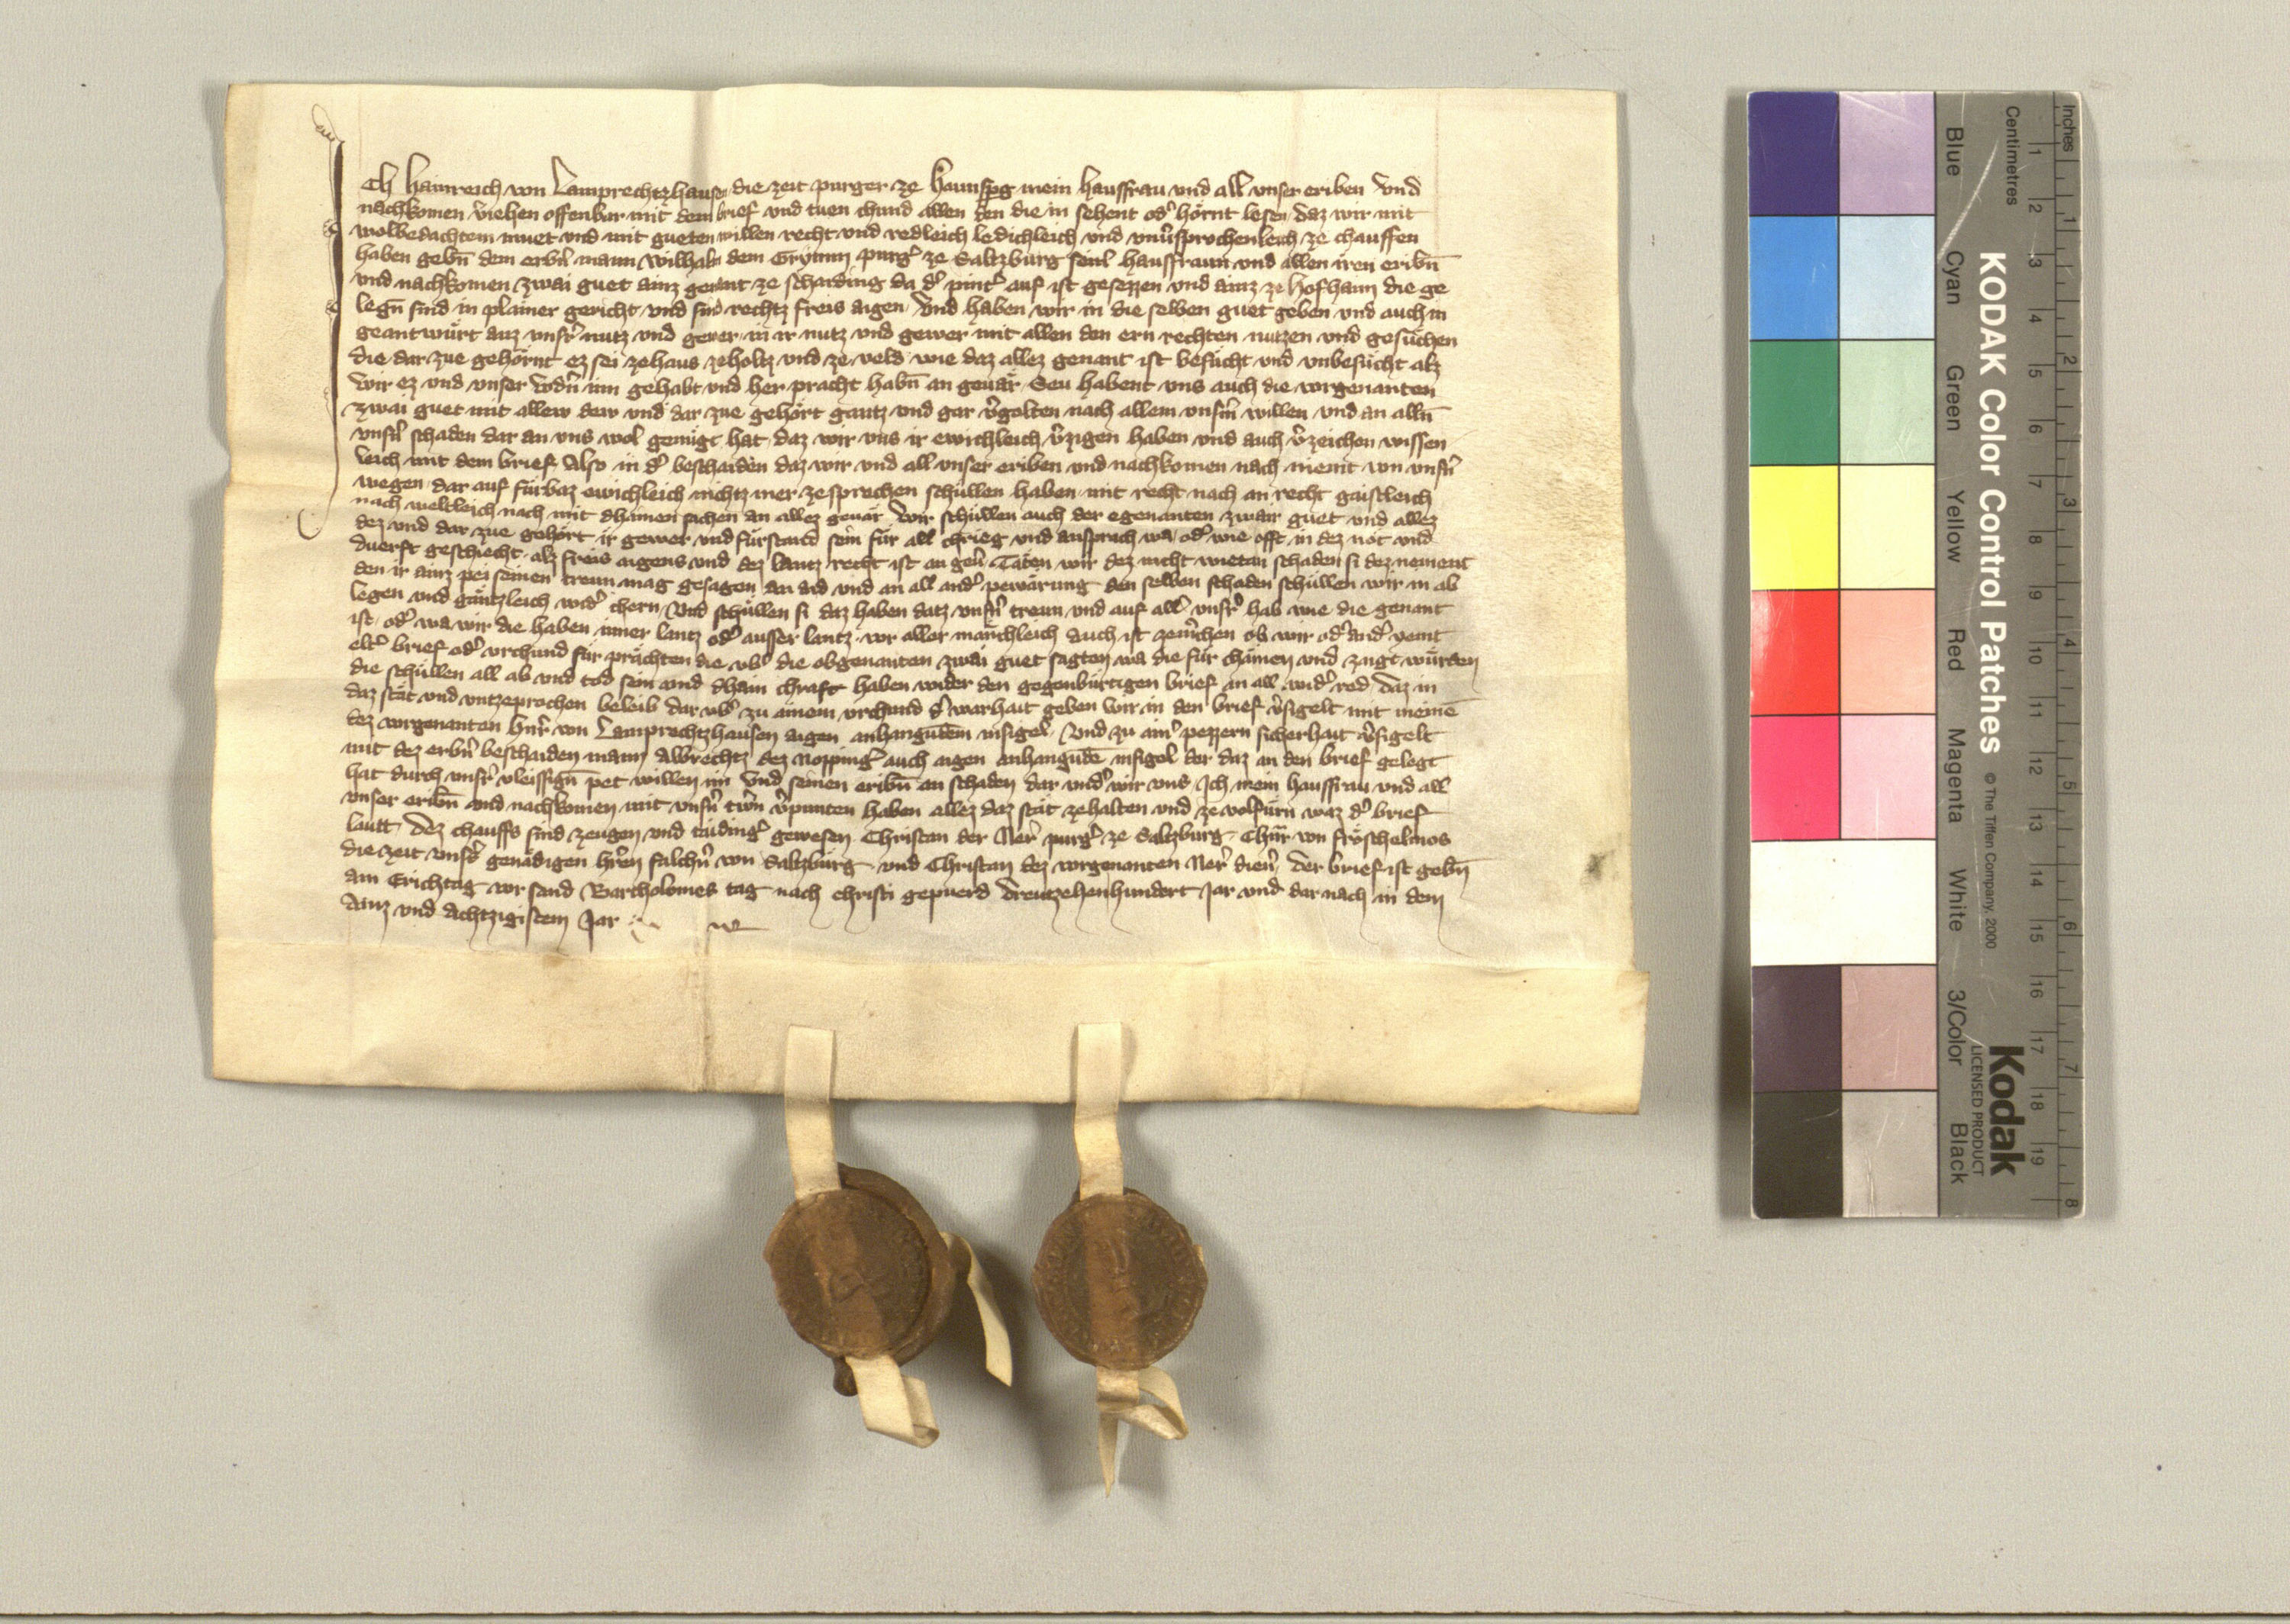 Ich Hainreich von Lamprechtzhausen die zeit purger ze Haunspg mein hausfrau und all unser eriben Vnd
nachkomen v̉iehen offenbar mit dem brief vnd tuen chund allen den die in sehent od̉ hörnt lesen daz wir mit
wolbedachtem muet vnd mit gueten willen recht vnd redleich ledichleich vnd vnv̉sprochenleich ze chauffen
haben gebn̄ dem erbn̉ mann Wilhalm dem purg̉ ze Saltzburg seinl̉ hausfraun vnd allen iren eribn̄
vnd nachkomen zwai guet ainz genant ze scharding da d̉ pint̉ auf ist gesezzen vnd ainz ze Hofhaim die ge
legn̄ sind in plainer gericht vnd sind rechtz freis aigen Vnd haben wir in die selben guet geben vnd auch in
geantwürt auz vnsr̉ nutz vnd gewer in ir nutz vnd gewer mit allen den ern rechten nutzen vnd gesüchen
die dar zue gehörnt ez sei ze haus ze holtz vnd ze veld wie daz allez genant ist besücht vnd vnbesücht alz
wir ez vnd vnser vodn̉ inn gehabt vnd her pracht habn̄ an geuär Seu habent vns auch die vorgenanten
zwai guet mit allew dew vnd dar zue gehört gantz vnd gar v̉golten nach allem vnsm̉ willen vnd an alln̄
vnsn̉ schaden dar an vns wol genügt hat daz wir vns ir ewichleich v̉zigen haben vnd auch v̉zeichen wissen
leich mit dem brief Also in d̉ beschaiden daz wir vnd all vnser eriben vnd nachkomen nach niemt von vnsn̉
wegen dar auf fürbaz ewichleich nichtz mer ze sprechen schüllen haben mit recht nach an recht gaistleich
nach weltleich nach mit dhainen sachen an allez geuär Wir schüllen auch der egenanten zwair guet vnd allez
dez vnd dar zue gehört ir gewer vnd fürstand sein für all chrieg vnd ansprach wa od̉ wie offt in dez not vnd
duerft geschiecht alz freis aigens vnd dez lantz recht ist an geủ Täten wir dez nicht wietan schaden si dez nement
den ir ainz pei seinen treun mag gesagen an aid vnd an all and̉ pewärung den selben schaden schüllen wir in ab
legen vnd gäntzleich wid̉ chern Vnd schüllen si daz haben datz vnsn̉ treun vnd auf all̉ vnsr̉ hab wie die genant
ist od̉ wa wir die haben inner lantz od̉ ausser lantz vor aller männchleich Auch ist zem̉chen ob wir od̉ and̉ yemt
elt̉ brief od̉ vrchund für prächten die vb̉ die obgenanten zwai guet sagten wa die für chämen vnd zaigt würden
die schüllen all ab vnd tod sein vnd dhain chraft haben wider den gegenbürtigen brief an all wid̉ red Daz in
daz stät vnd vntzeprochen beleib dar vb̉ zu ainem vrchund d̉ warhait geben wir in den brief v̉sigelt mit meinē
dez vorgenanten Hnr̉ von Lamprechtzhausen aigen anhangundem insigel Vnd zu ain̉ pezzern sicherhait v̉sigelt
mit dez erbn̉ beschaiden mann Albrechtz dez Nopping̉ auch aigen anhangudē insigel der daz an den brief gelegt
hat durch vnsr̉ vleissign̄ pet willen im Vnd seinen eribn̄ an schaden dar vnd̉ wir vns Ich mein hausfrau vnd all
vnser eribn̄ vnd nachkomen mit vnsn̉ twn̉ v̉punten haben allez daz stät zehalten vnd ze volfürn waz d̉ brief
lautt Dez chauffs sind zeugen vnd täiding̉ gewesen Christan der Ner̉ purg̉ ze Saltzburg Chnr̉ von fröschelmos
die zeit vnsr̉ genädigen hr̉en falchn̉ von Saltzburg vnd Christan dez vorgenanten Ner̉ dien̉ Der brief ist gebn̄
am Erichtag vor sand Bartholomes tag nach christi gepuerd Dreutzehenhundert Jar vnd dar nach in dem
Ainz vnd Achtzigistem Jar
KODAK Color Control Patches © The Tiffen Company, 2000
Kodak
LICENSED PRODUCT
Blue Cyan Green Yellow Red Magenta White 3/Color Black
Centimetres 1 2 3 4 5 6 7 8 9 10 11 12 13 14 15 16 17 18 19
Inches 1 2 3 4 5 6 7 8